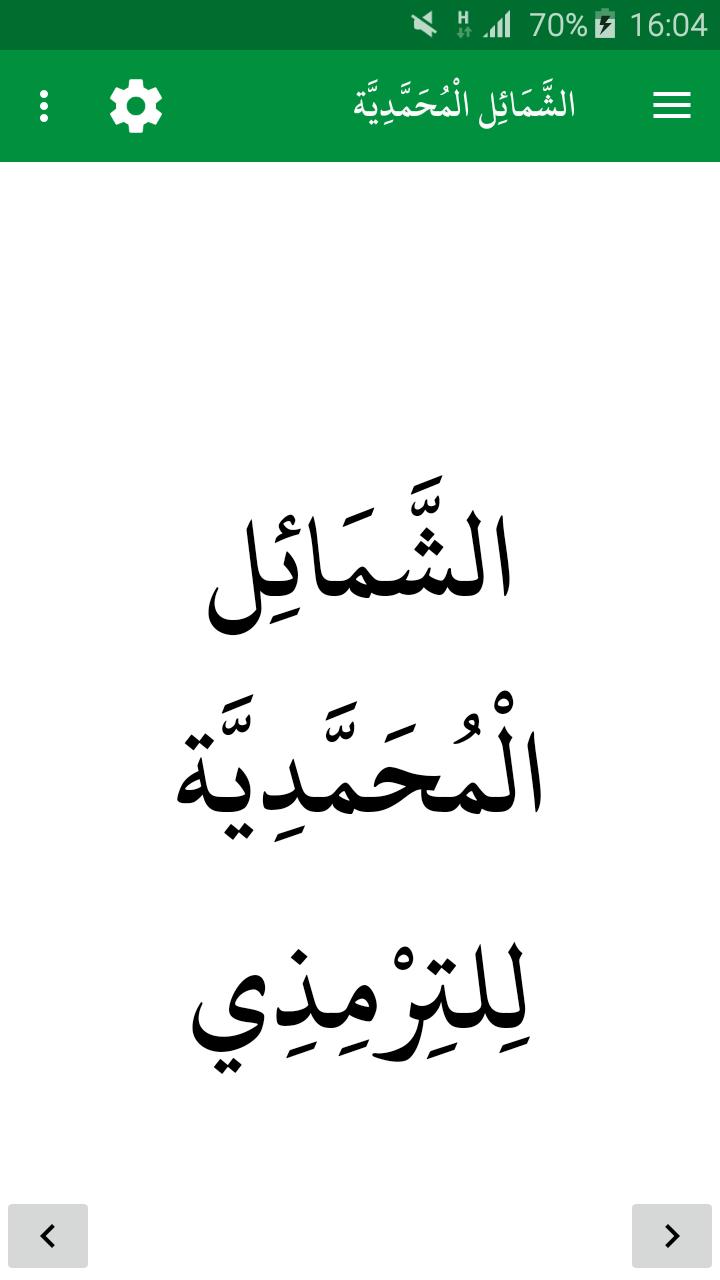 H 70% 16:04
الشَّمَائِل الْمُحَمَّدِيَّة
الشَّمَائِل
الْمُحَمَّدِيَّة
لِلتِرْمِذِي